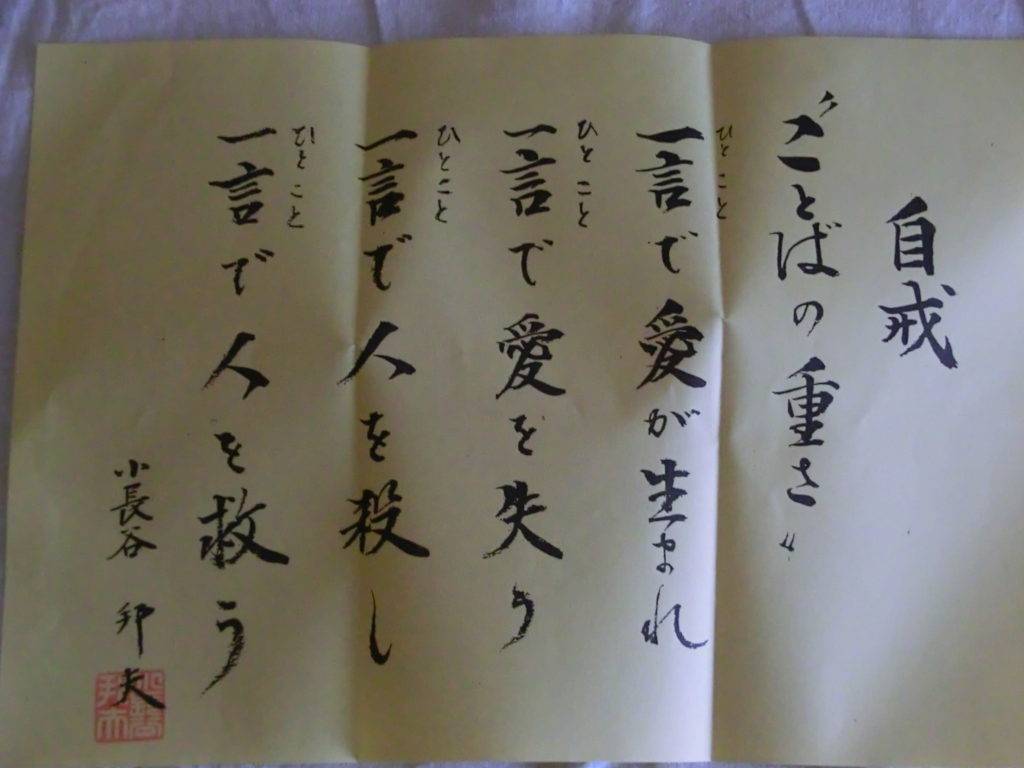 自戒
〝ことばの重さ〟
一言で愛が生まれ
ひとこと
一言で愛を失う
ひとこと
一言で人を殺し
ひとこと
一言で人を救う
ひとこと
小長谷 邦夫